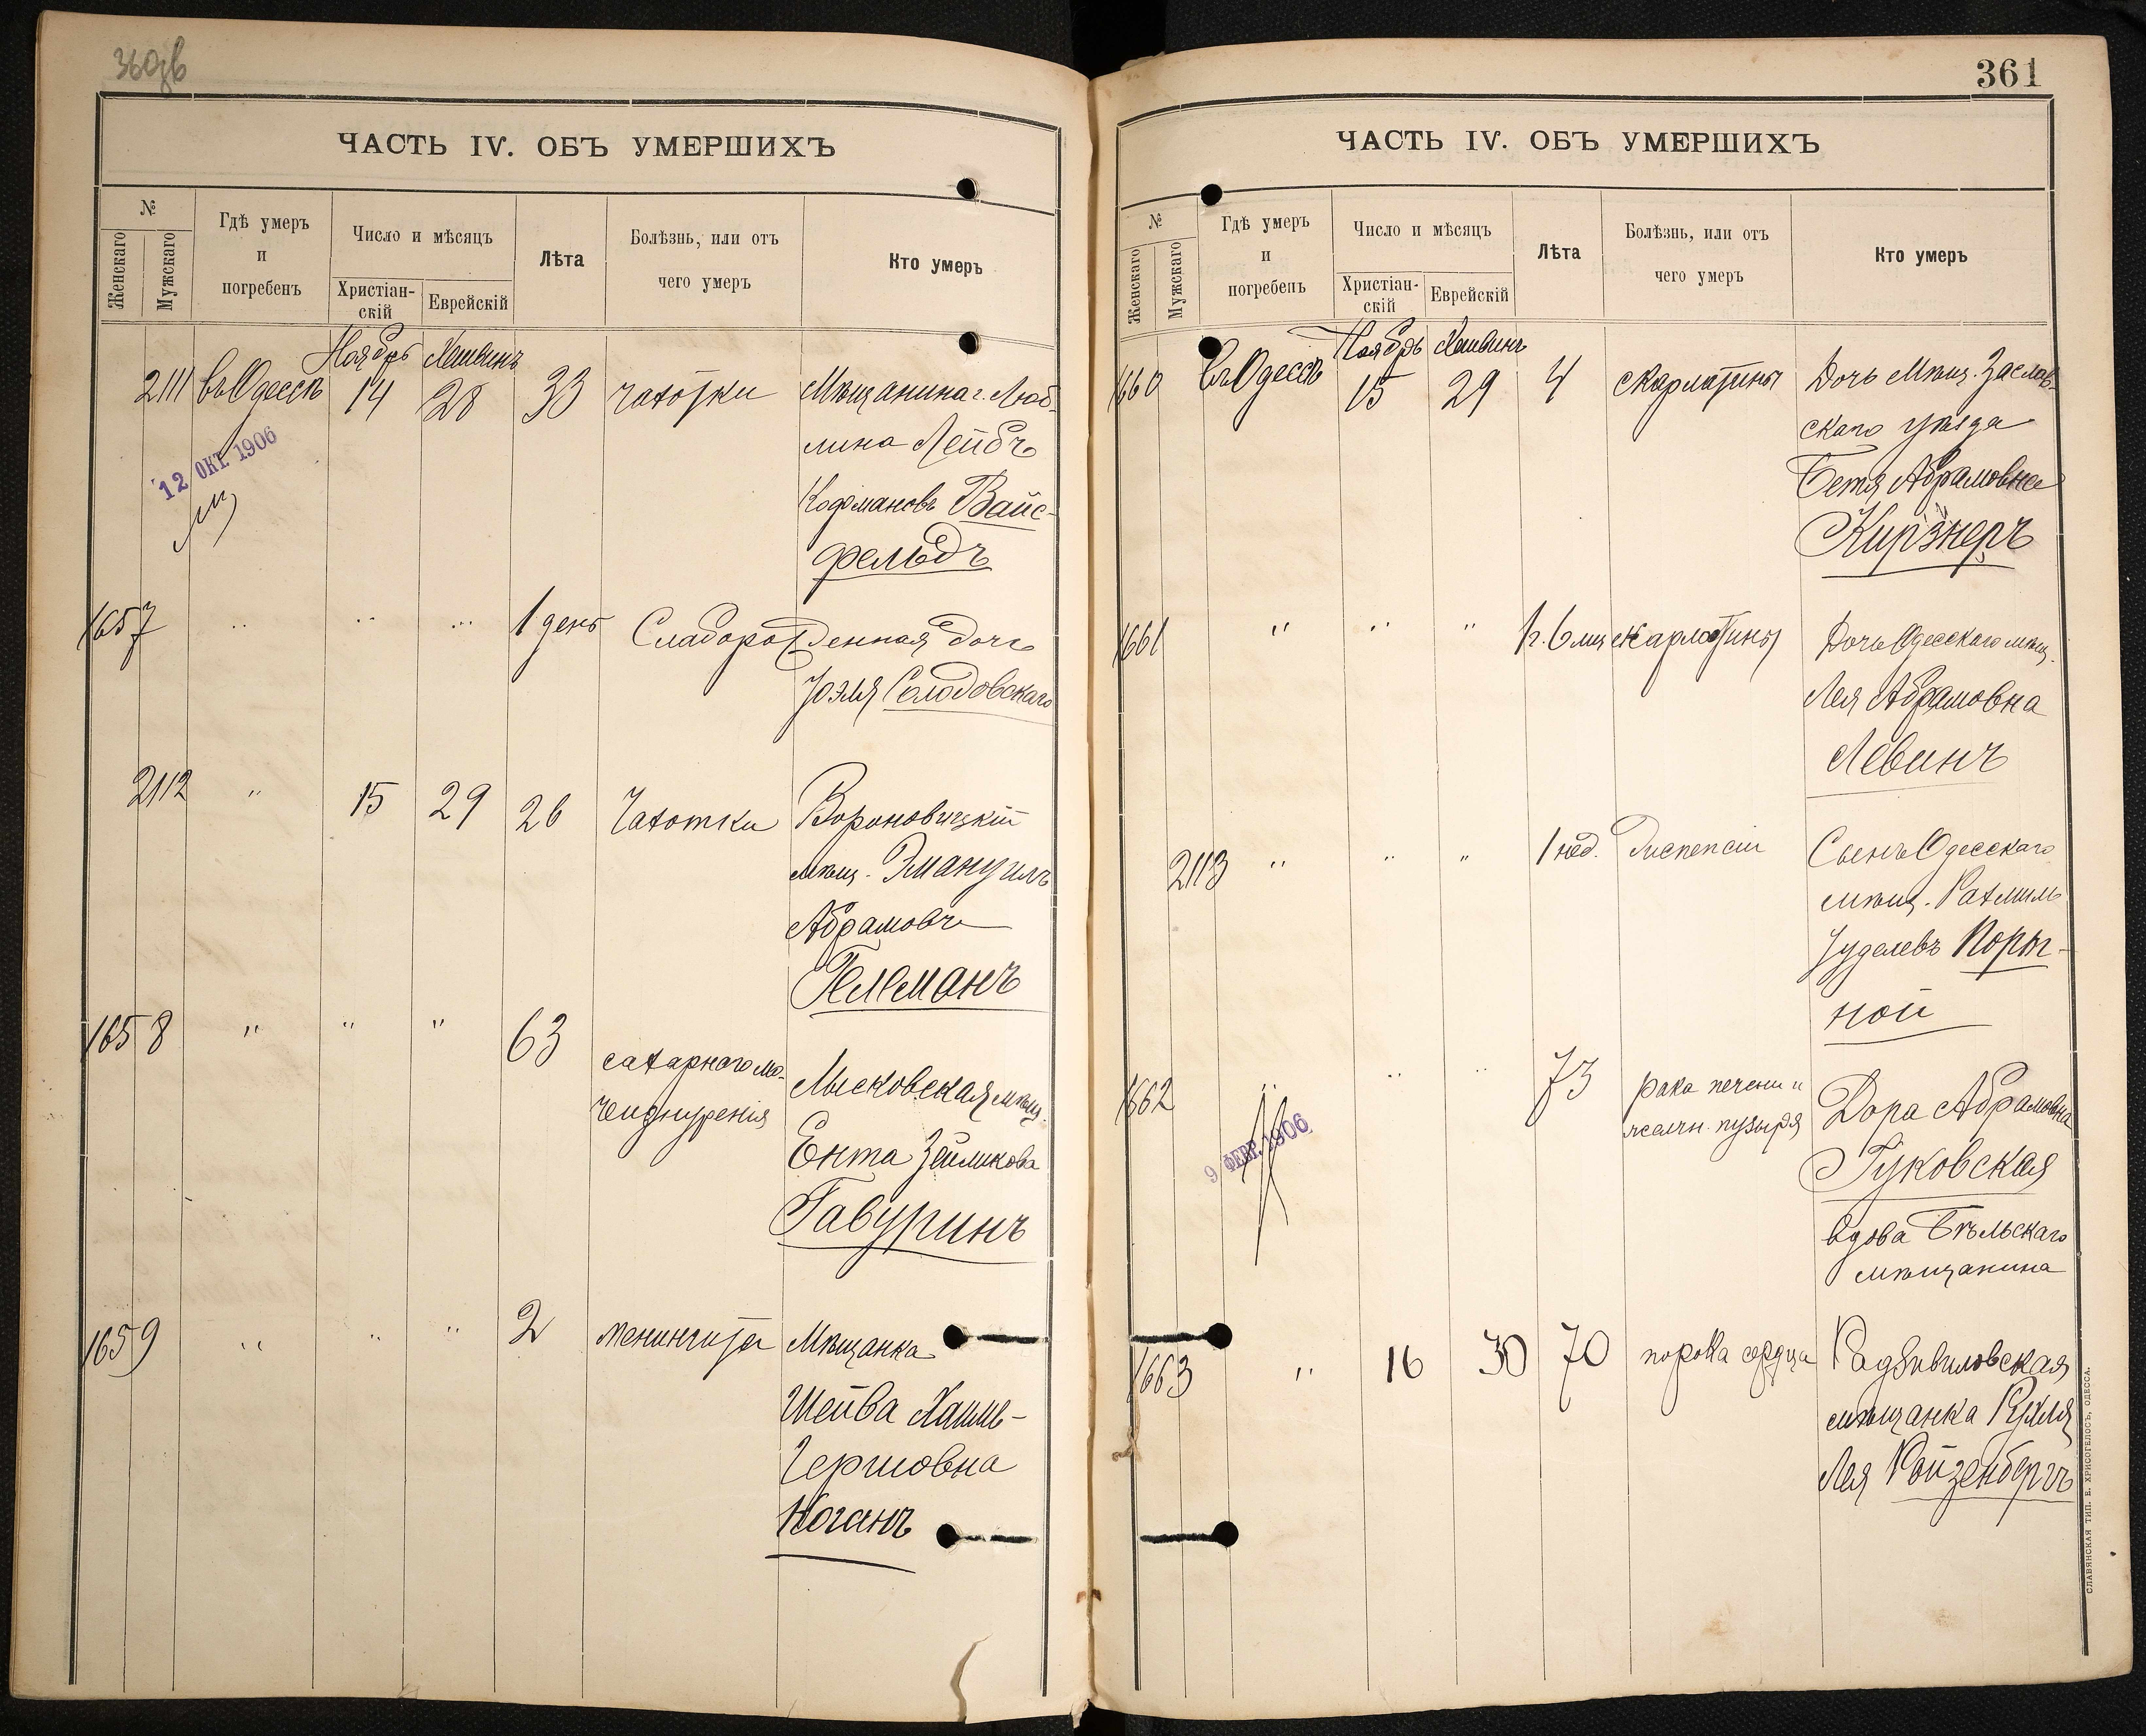 360об
ЧАСТЬ IV. ОБЪ УМЕРШИХЪ
№
Женскаго
Мужскаго
Гдѣ умеръ
и
погребенъ
Число и мѣсяцъ
Христіан-
скій
Еврейскій
Лѣта
Болѣзнь, или отъ
чего умеръ
Кто умеръ
Ноябрь Хешвинъ
2111 въ Одессѣ 14 28 33 чахотки Мѣщанина г. Люб-
лина Лейбъ
Кофмановъ Вайс-
фельдъ
12 ОКТ 1906
1657 " " " 1 день Слаборожденная дочь
Іоэля Солодовскаго
2112 " 15 29 26 Чахотки Вороновицкій
мѣщ. Эмануилъ
Абрамовъ
Гельманъ
1658 " " " 63 сахарнаго мо-
чеизнуренія
Лысковская мѣщ.
Ента Зейликова
Гавуринъ
1659 " " " 2 менингита Мѣщанка
Шейва Хаимъ-
Гершовна
Коганъ
361
ЧАСТЬ IV. ОБЪ УМЕРШИХЪ
№
Женскаго
Мужскаго
Гдѣ умеръ
и
погребенъ
Число и мѣсяцъ
Христіан-
скій
Еврейскій
Лѣта
Болѣзнь, или отъ
чего умеръ
Кто умеръ
Ноябрь Хешвинъ
1660 въ Одессѣ 15 29 4 скарлатины Дочь Мѣщ. Заслав-
скаго уѣзда
Бетя Абрамовна
Кирзнеръ
1661 " " " 1 г. 6 мц скарлатины Дочь Одесскаго мѣщ.
Лея Абрамовна
Левинъ
2113 " " " 1 нед. Диспепсіи Сынъ Одесскаго
мѣщ. Рахмиль
Іуделевъ Порт-
ной
1662 " " " 73 рака печени и
желчн. пузыря
Дора Абрамовна
Гуковская
вдова Бѣльскаго
мѣщанина
9 ФЕВР. 1906
1663 " 16 30 70 порока сердца Радзивиловская
мѣщанка Рухля
Лея Ройзенбергъ
СЛАВЯНСКАЯ ТИП. Е. ХРИСОГЕЛОСЪ, ОДЕССА.